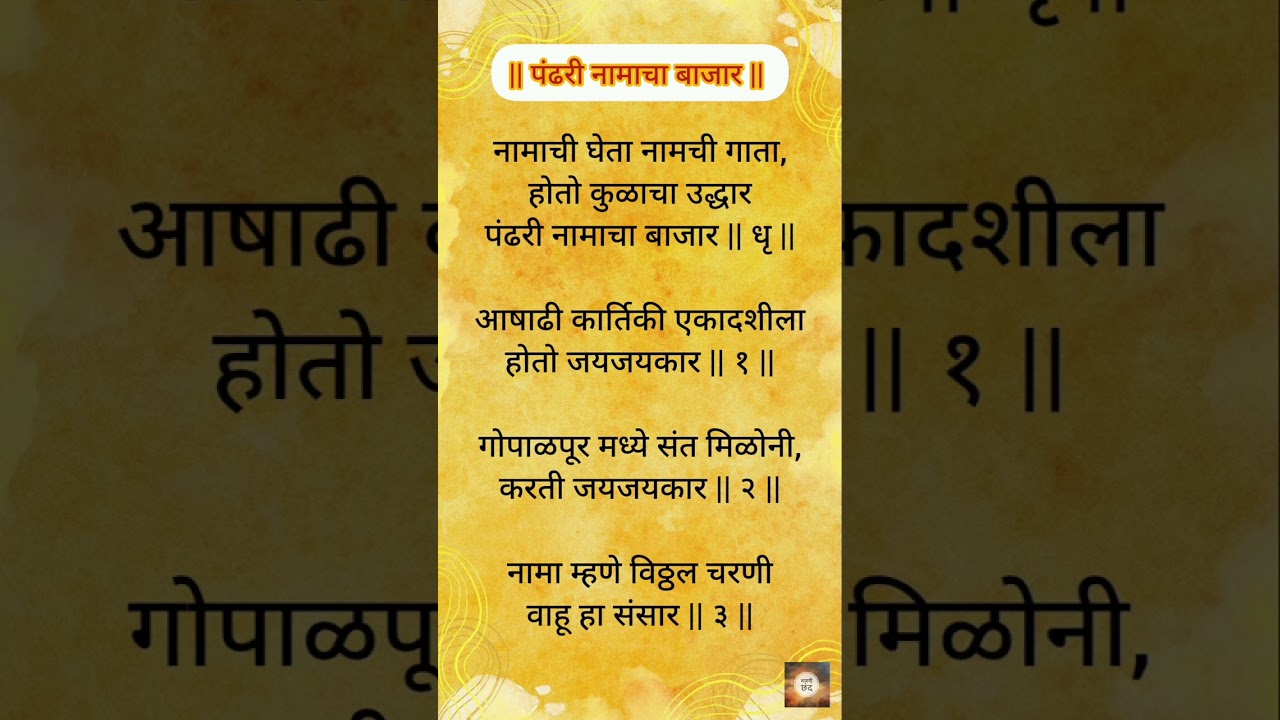 || पंढरी नामाचा बाजार ||
नामाची घेता नामची गाता,
होतो कुळाचा उद्धार
पंढरी नामाचा बाजार || धृ ||
आषाढी कार्तिकी एकादशीला
होतो जयजयकार || १ ||
गोपाळपूर मध्ये संत मिळोनी,
करती जयजयकार || २ ||
नामा म्हणे विठ्ठल चरणी
वाहू हा संसार || ३ ||